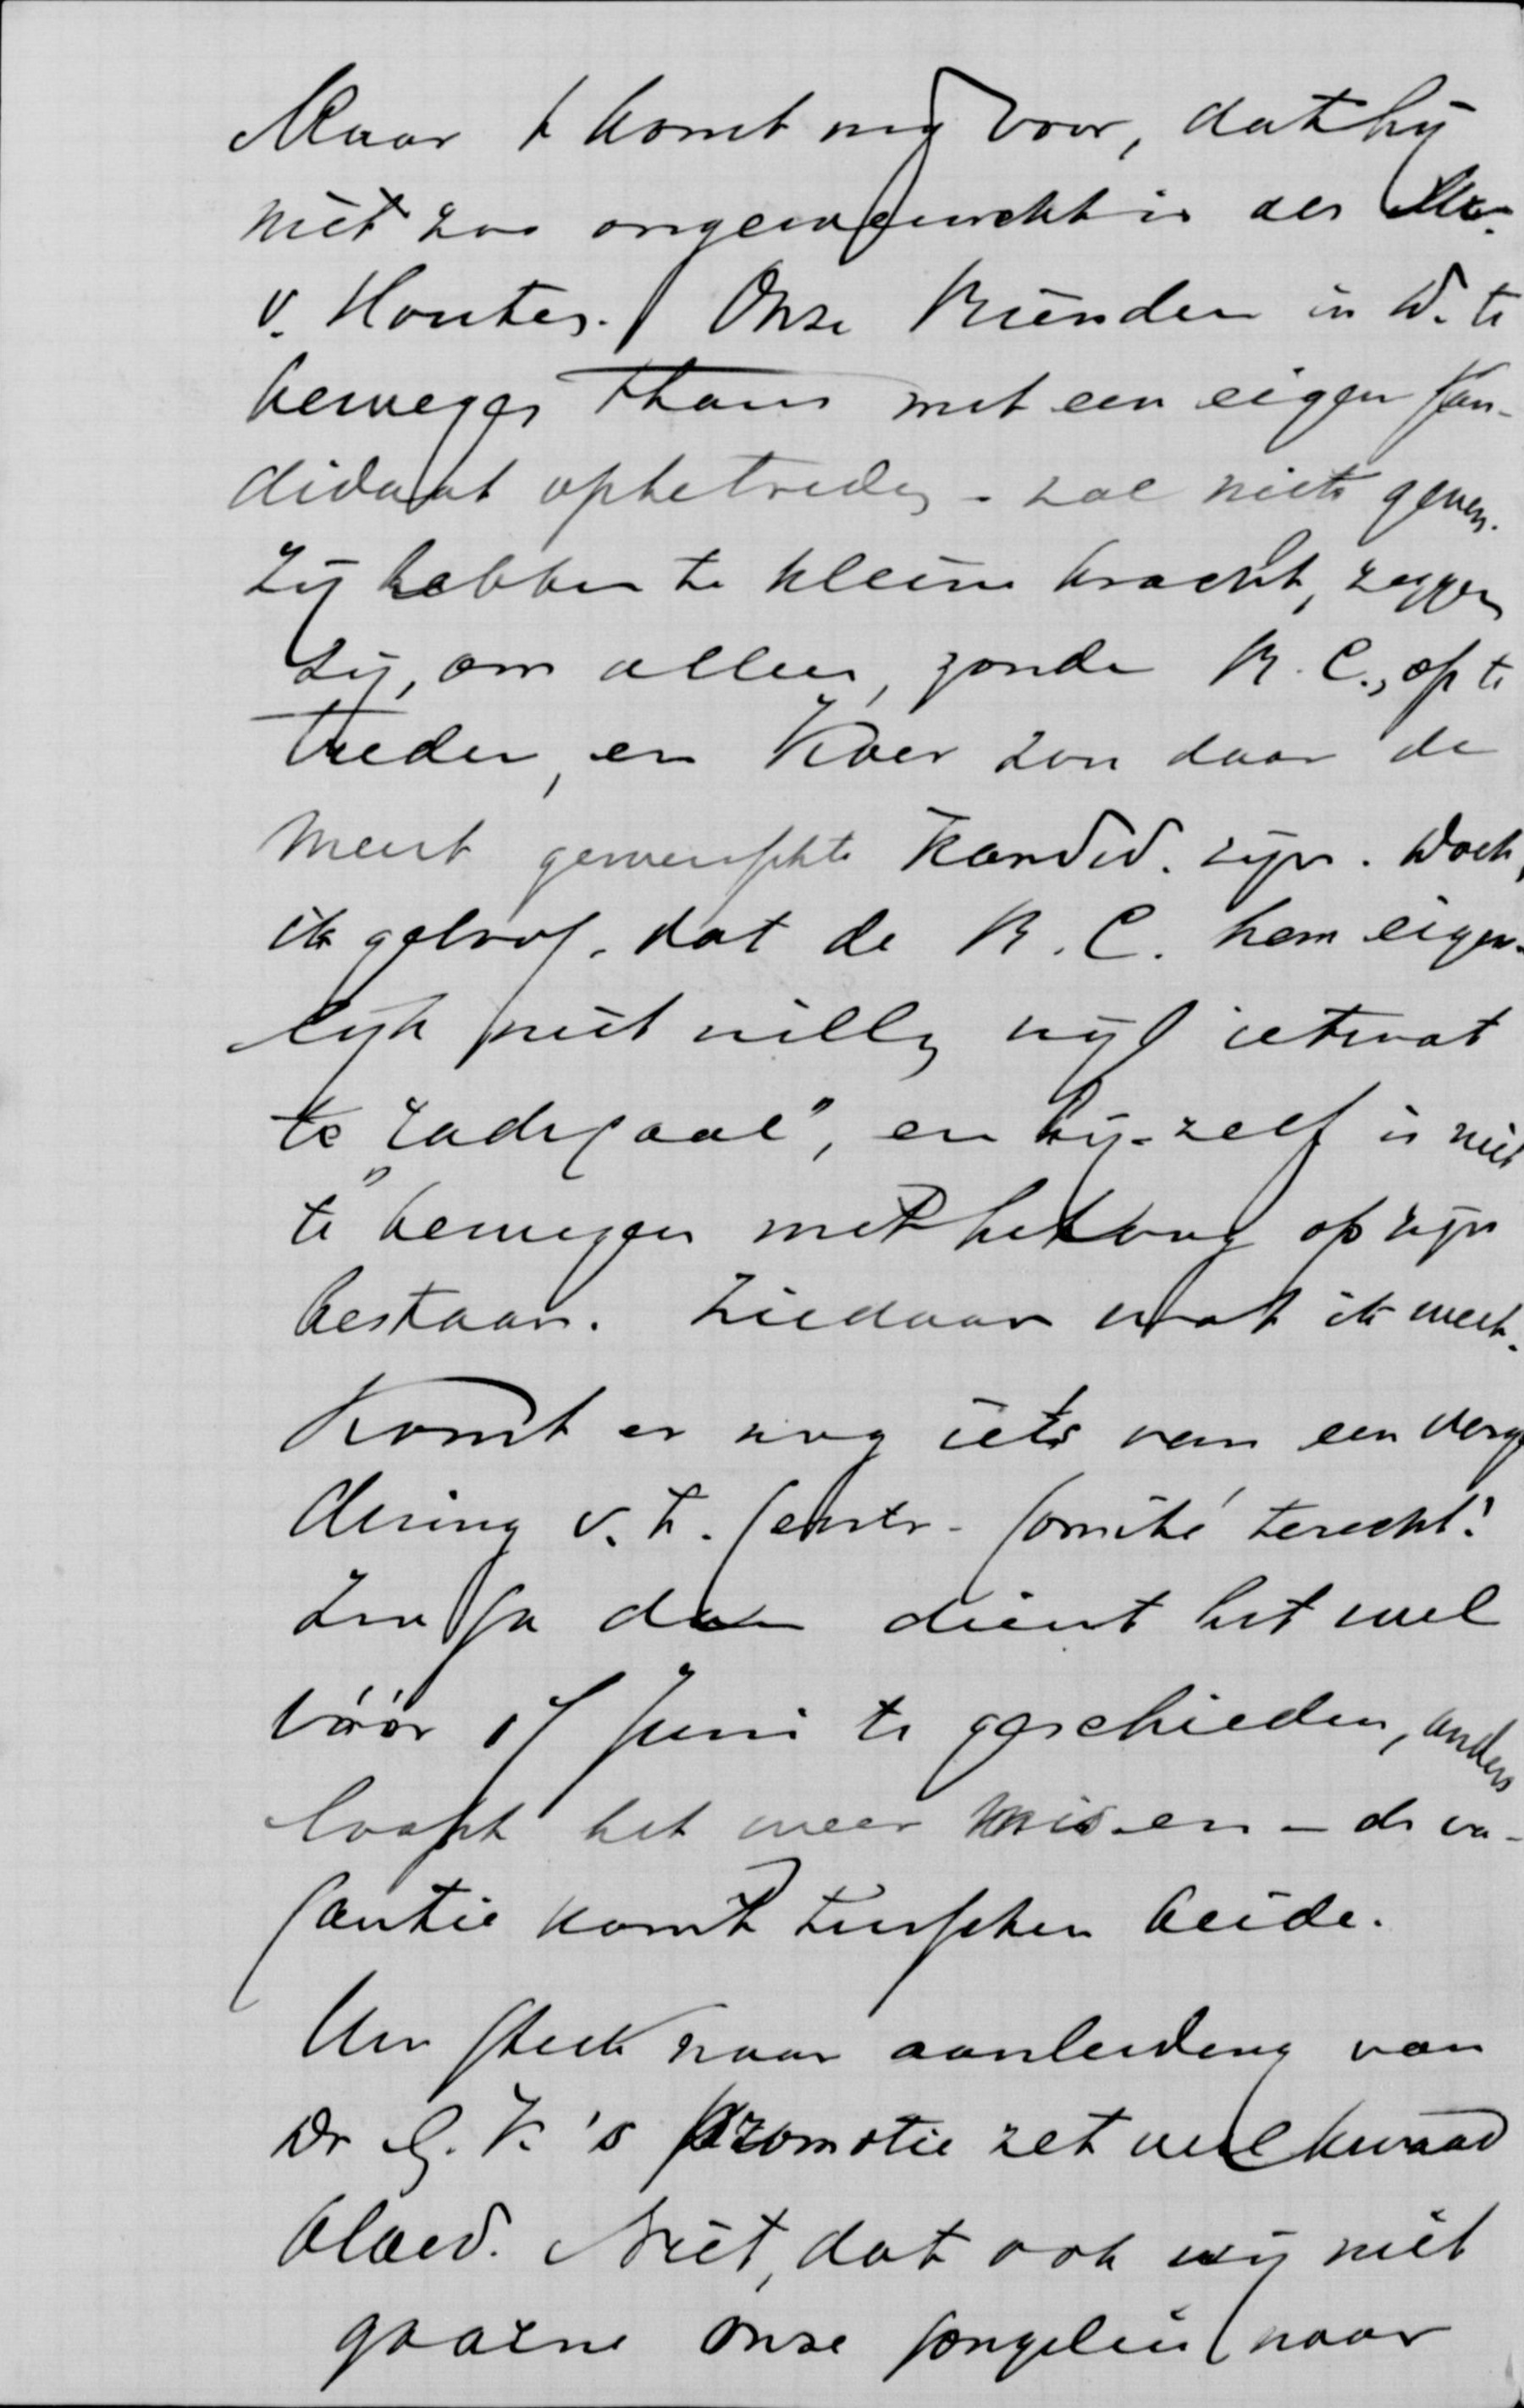 Maar 't komt mij voor, dat hij
niet zoo ongewenscht is als Mr.
v. Houten. Onze vrienden in W. te
bewegen thans met een eigen kan-
didaat optetreden - zal niets geven.
Zij hebben te kleine kracht, zeggen
zij, om alleen, zonder R. C., op te
treden, en zou daar de
meest gewenschte kandid. zijn. Doch,
ik geloof, dat de R. C. hem eigen-
lijk niet willen wijl ietwat
te "radicaal", en hij-zelf is niet
te bewegen met het oog op zijn
bestaan. Ziedaar wat ik weet.
Komt er nog iets van een verga
dering v. h. Centr. Comité terecht?
Zoo ja dan dient het wel
vóór 17 Juni te geschieden, anders
loopt het weer mis en - de va-
cantie komt tusschen beide.
Uw stuk naar aanleiding van
Dr G. V.'s promotie zet veel kwaad
bloed. Niet, dat ook wij niet
gaarne onze jongelui naar